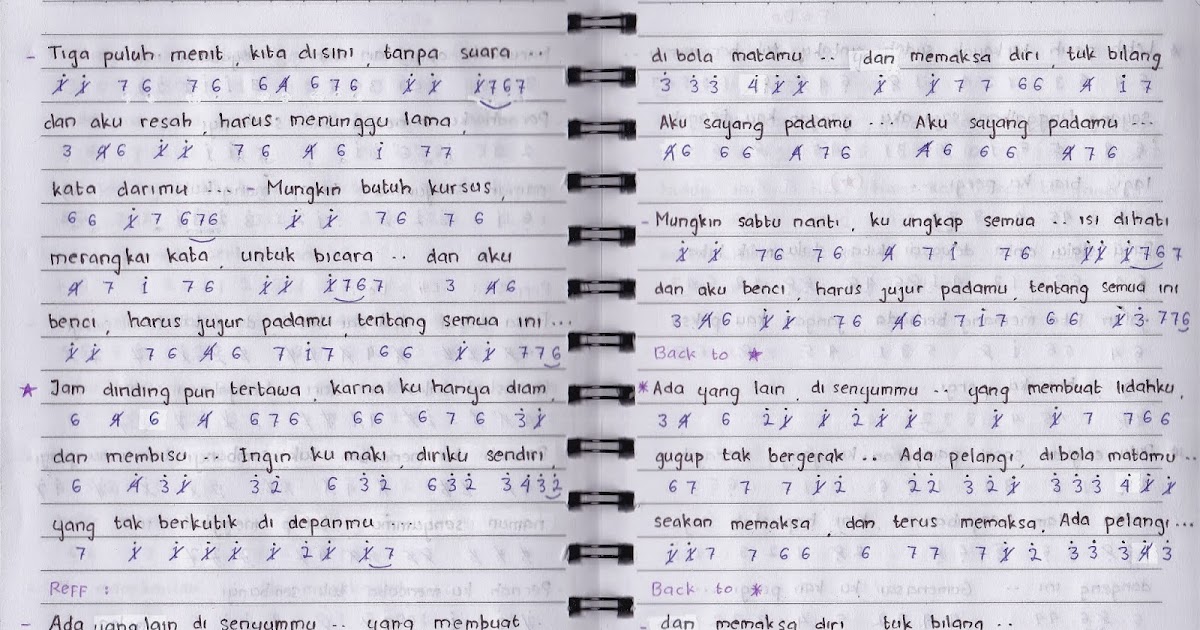 - Tiga puluh menit, kita disini tanpa suara ...
1̸̇ 1̸̇ 7 6 7 6 6 4̸ 6 7 6 1̸̇ 1̸̇ 1̸̇ 7 6 7
dan aku resah, harus menunggu lama,
3 4̸ 6 1̸̇ 1̸̇ 7 6 4̸ 6 1̇ 7 7
kata darimu .... - Mungkin butuh kursus,
6 6 1̸̇ 7 6 7 6 1̸̇ 1̸̇ 7 6 7 6
merangkai kata, untuk bicara .. dan aku
4̸ 7 1̇ 7 6 1̸̇ 1̸̇ 1̸̇ 7 6 7 3 4̸ 6
benci, harus jujur padamu, tentang semua ini ...
1̸̇ 1̸̇ 7 6 4̸ 6 7 1̇ 7 6 6 1̸̇ 1̸̇ 7 7 6
★ Jam dinding pun tertawa, karna ku hanya diam,
6 4̸ 6 4̸ 6 7 6 6 6 6 7 6 3̇ 1̸̇
dan membisu .. Ingin ku maki, diriku sendiri,
6 4̸ 3̇ 1̸̇ 3̇ 2̇ 6 3̇ 2̇ 6 3̇ 2̇ 3̇ 4̇ 3̇ 2̇
yang tak berkutik di depanmu ....
7 1̸̇ 1̸̇ 1̸̇ 1̸̇ 1̸̇ 2̇ 1̸̇ 1̸̇ 7
Reff :
- Ada yang lain di senyummu .. yang membuat
di bola matamu .. dan memaksa diri, tuk bilang
3̇ 3̇ 3̇ 4̇ 1̸̇ 1̸̇ 1̸̇ 1̸̇ 7 7 6 6 4̸ 1̇ 7
Aku sayang padamu ... Aku sayang padamu ...
4̸ 6 6 6 4̸ 7 6 4̸ 6 6 6 4̸ 7 6
- Mungkin sabtu nanti, ku ungkap semua .. isi dihati
1̸̇ 1̸̇ 7 6 7 6 4̸ 7 1̇ 7 6 1̸̇ 1̸̇ 1̸̇ 7 6 7
dan aku benci, harus jujur padamu, tentang semua ini
3 4̸ 6 1̸̇ 1̸̇ 7 6 4̸ 6 7 1̇ 7 6 6 1̸̇ 3̇ 7 7 6
Back to ★
* Ada yang lain, di senyummu .. yang membuat lidahku,
3 4̸ 6 2̇ 1̸̇ 1̸̇ 2̇ 1̸̇ 1̸̇ 1̸̇ 1̸̇ 7 7 6 6
gugup tak bergerak .. Ada pelangi, dibola matamu ..
6 7 7 7 1̸̇ 2̇ 2̇ 2̇ 3̇ 2̇ 1̸̇ 3̇ 3̇ 3̇ 4̇ 1̸̇ 1̸̇
seakan memaksa, dan terus memaksa, Ada pelangi ...
1̸̇ 1̸̇ 7 7 6 6 6 7 7 7 1̸̇ 2̇ 3̇ 3̇ 3̇ 4̸̇ 3̇
Back to *
- dan memaksa diri tuk bilang ..